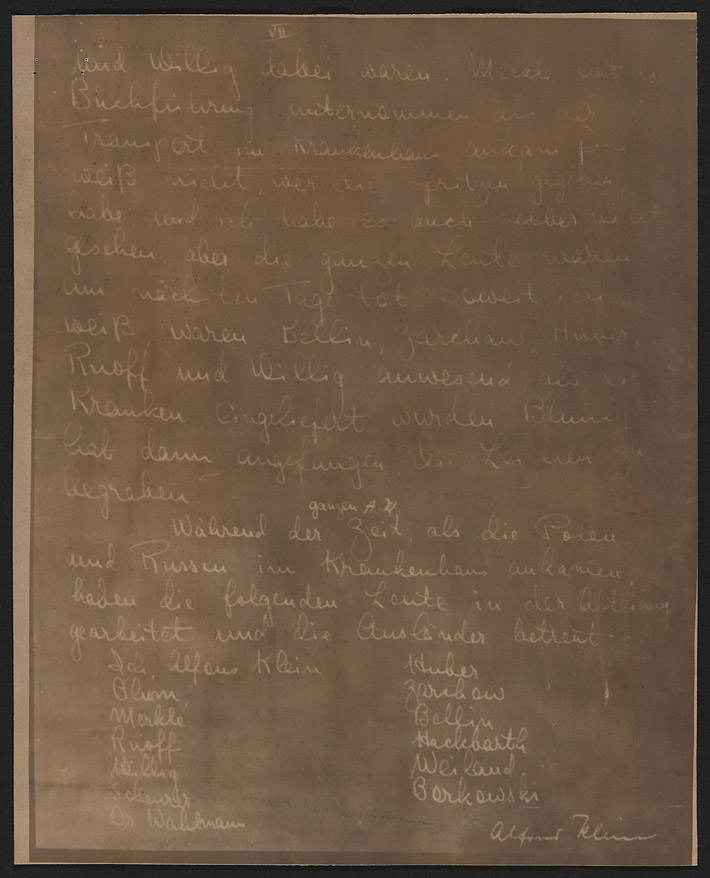 VII
und Willig dabei waren. Merkle hat
Buchführung unternommen als der
Transport im Krankenhaus ankam
weiß nicht, wer die Spritzen gegeben
habe und ich habe es auch selber nicht
gesehen, aber die ganzen Leute waren
am nächsten Tage tot soweit ich
weiß, waren Bellin, Zarchow, Huber,
Ruoff und Willig anwesend als
Kranken eingeliefert wurden Blum
hat dann angefangen die Leichen zu
begraben
ganzen A.K.
Während der Zeit, als die Polen
und Russen im Krankenhaus ankamen
haben die folgenden Leute in der Abteilung
gearbeitet und die Ausländer betreut
Ich, Alfons Klein
Blum
Merkle
Ruoff
Willig
Scheurer
Dr Wahlmann
Huber
Zarchow
Bellin
Hackbarth
Weiland
Borkowski
Alfons Klein